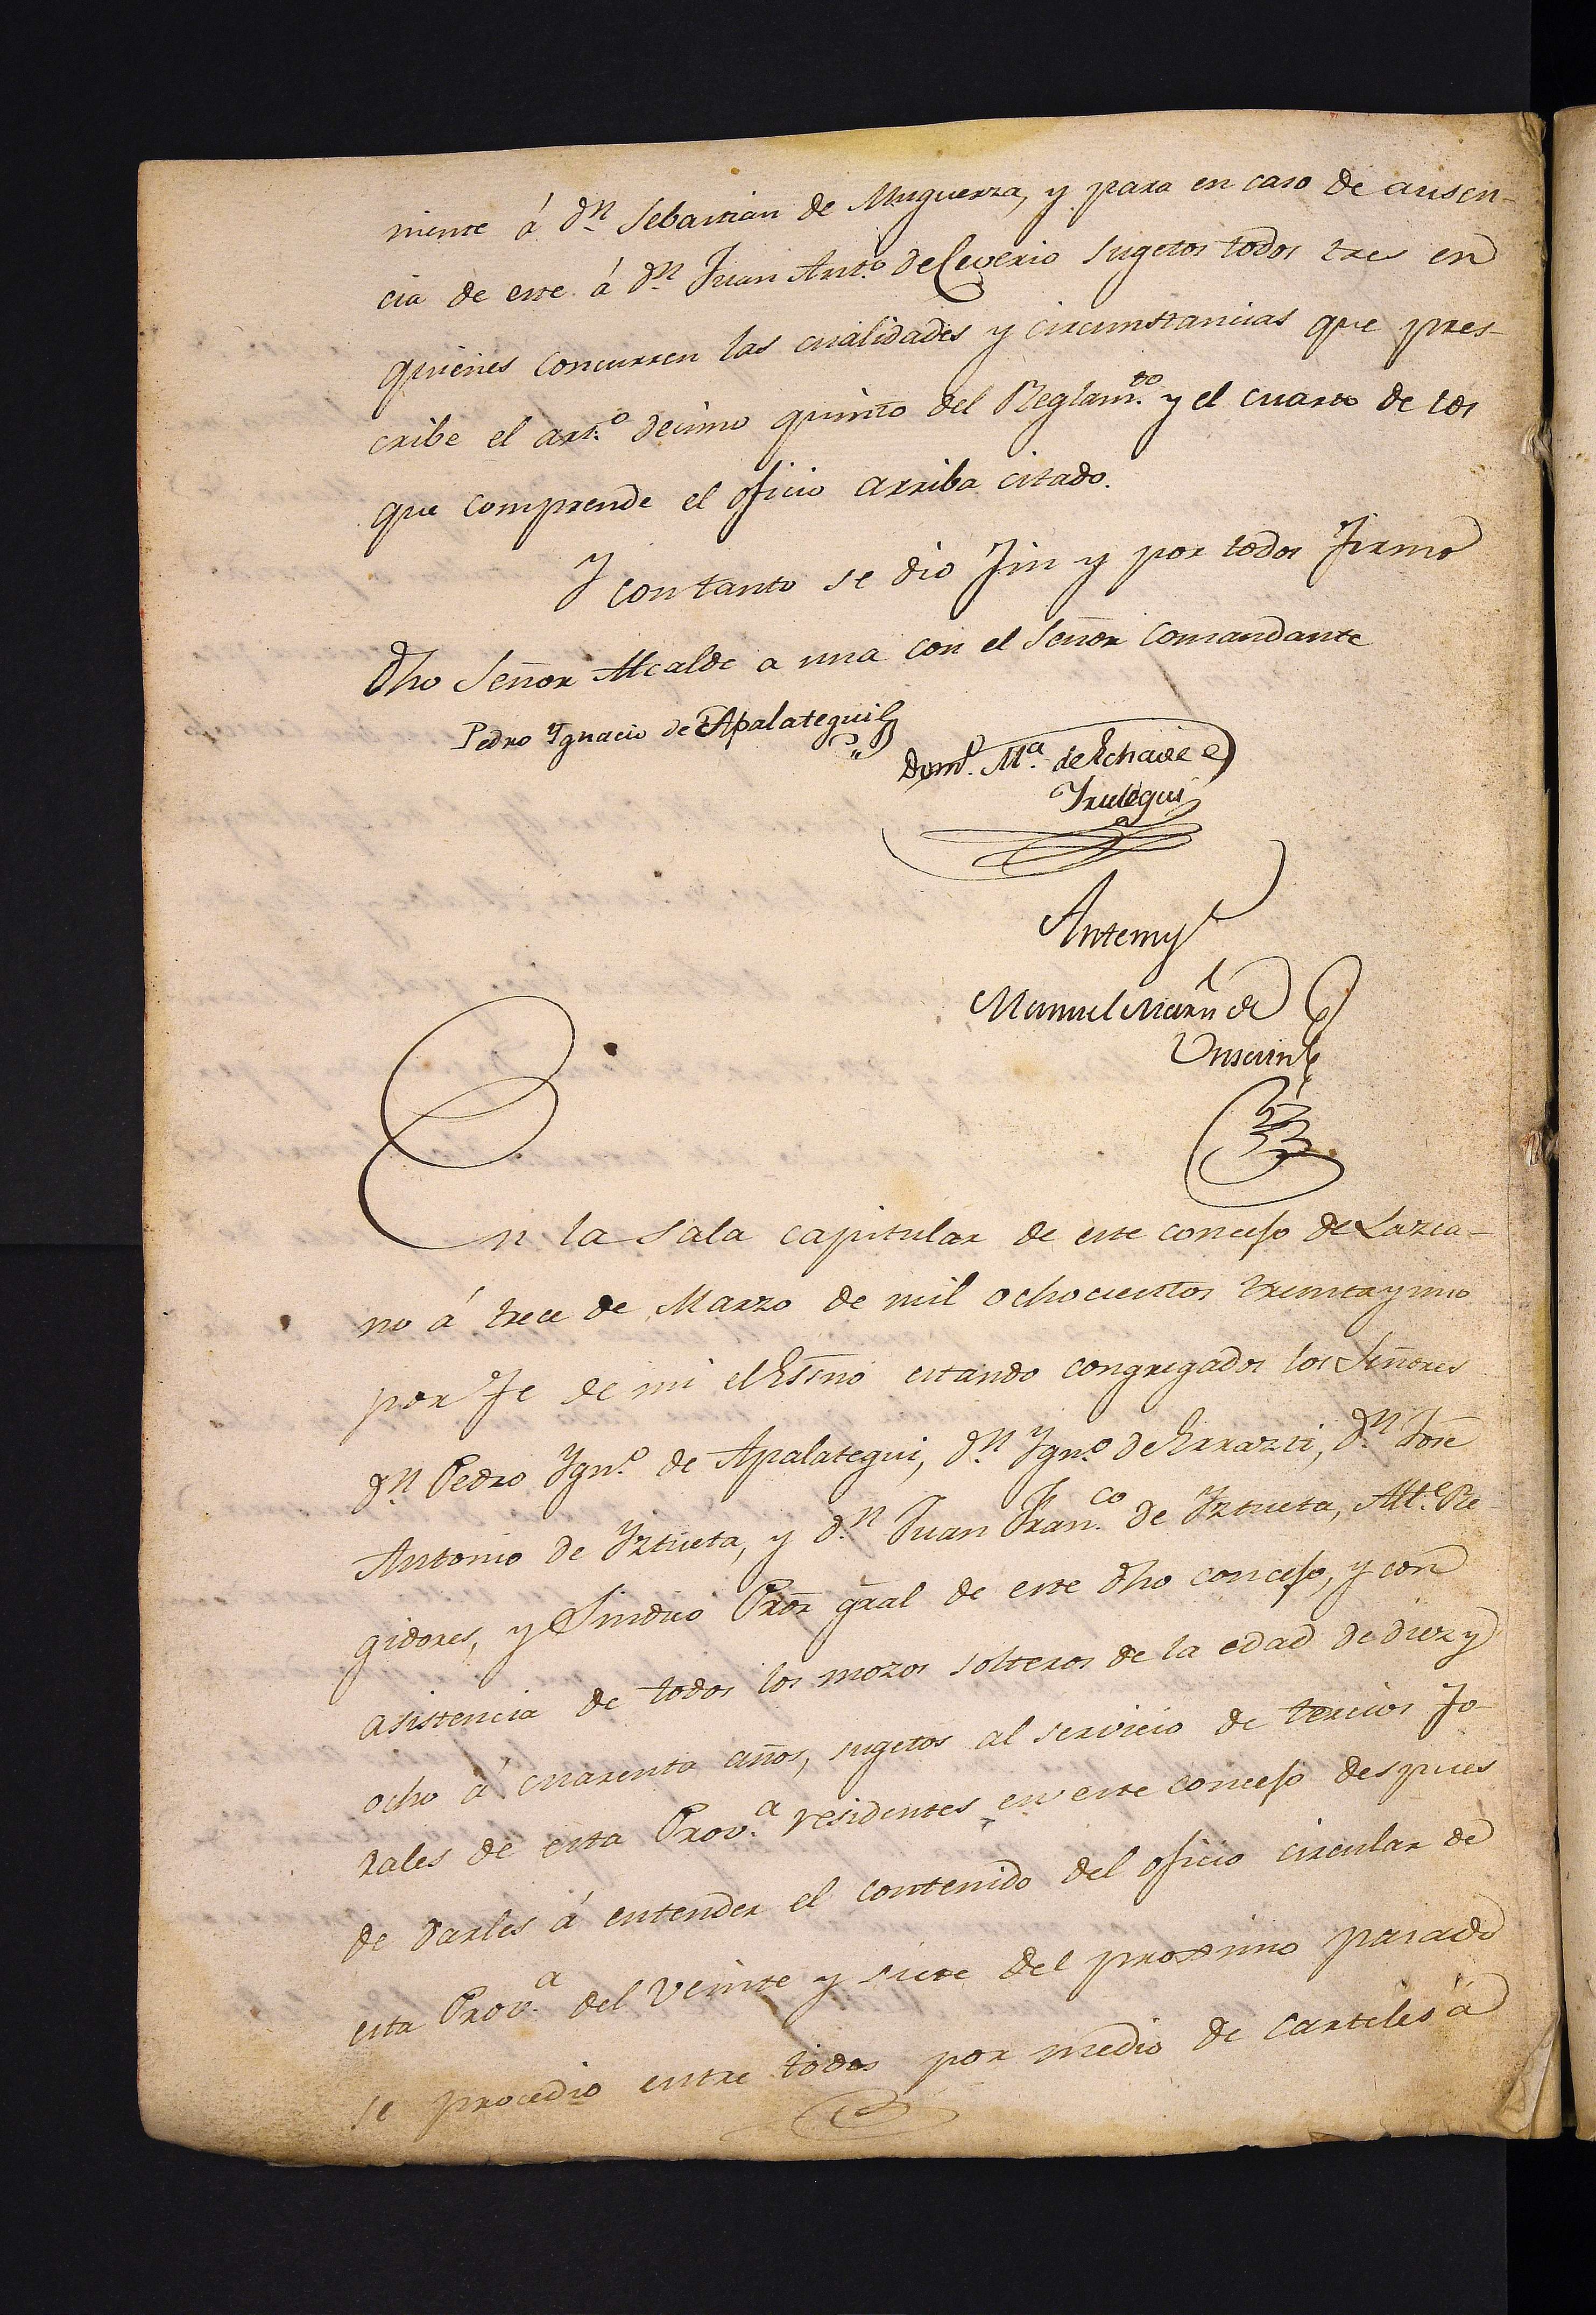 niente á Dn. Sebastian de Muguerza, y para en caso de ausen-
cia de este á Dn. Juan Anto. de Ceverio sugetos todos tres en
quienes concurren las cualidades y circunstancias que pres-
cribe el arto. decimo quinto del Reglamto. y el cuarto de los
que comprende el oficio arriba citado.
Y con tanto se dio fin y por todos firmó
dho Señor Alcalde a una con el Señor Comandante
Pedro Ygnacio de Apalategui
Domo. Ma. de Echave e
Yrulegui
Antemy
Manuel Marn. de
Unsain
En la sala capitular de este concejo de Lazca-
no á trece de Marzo de mil ochocientos treinta y uno
por fe de mi el Esno estando congregados los Señores
Dn. Pedro Ygno. de Apalategui, Dn. Ygno. de Errazti, Dn. José
Antonio de Yztueta, y Dn. Juan Franco. de Yztueta, Alte. Re-
gidores, y Sindico Pror gral de este dho concejo, y con
asistencia de todos los mozos solteros de la edad de diez y
ocho á cuarenta años, sugetos al servicio de tercios fo-
rales de esta Prova. residentes en este concejo despues
de darles á entender el contenido del oficio circular de
esta Prova. del veinte y siete del proximo pasado
se procedio entre todos por medio de carteles á